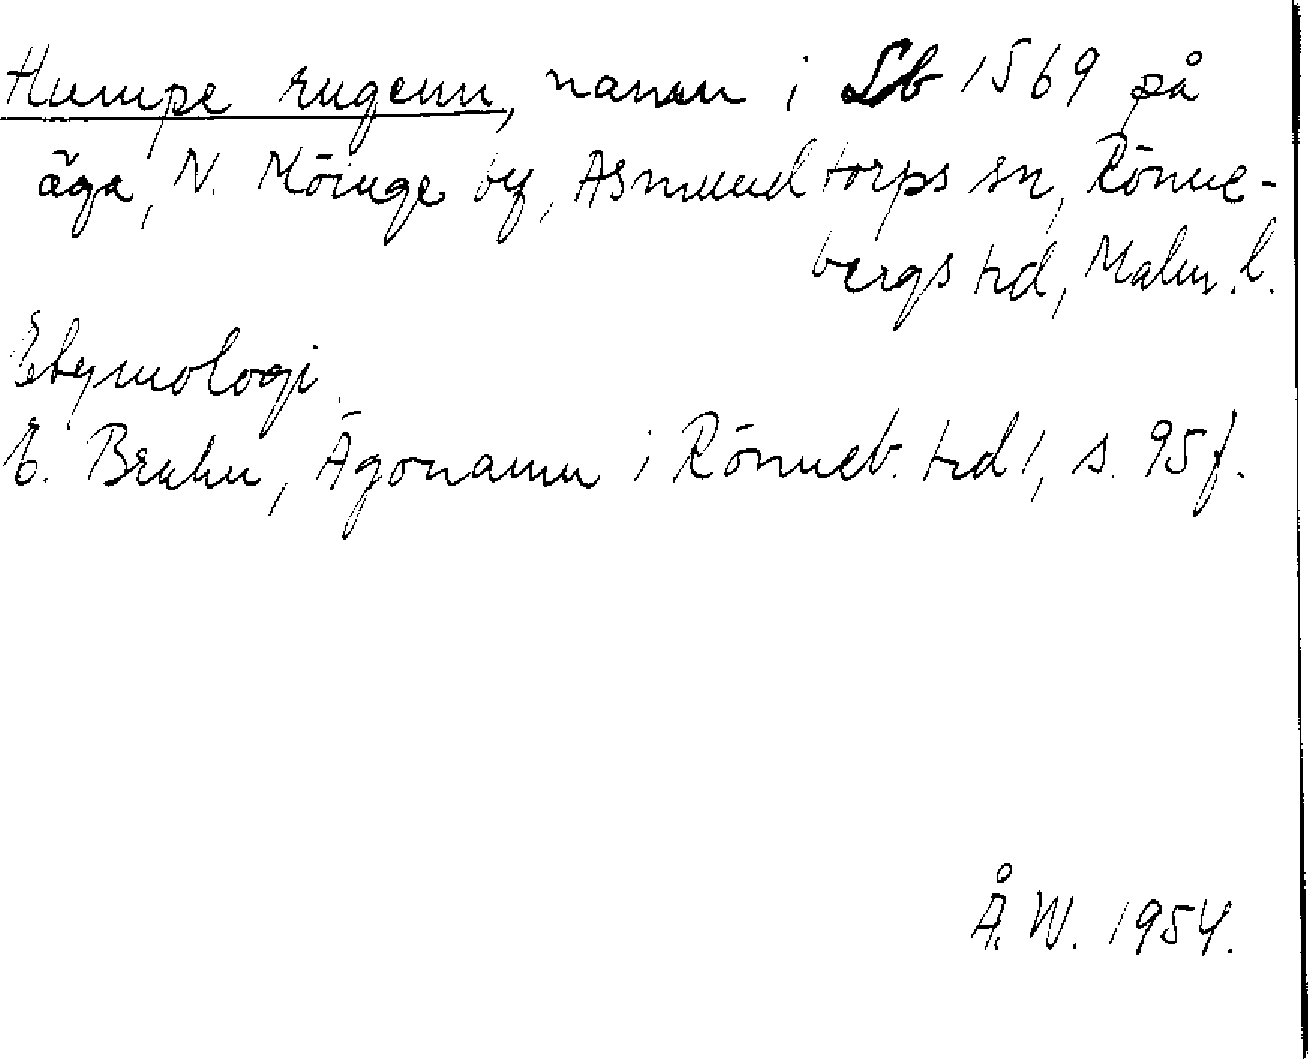 Humpe rugenn, namn i Lb 1569 på
äga, N. Möinge by, Asmundtorps sn, Rönne-
bergs hd, Malm. l.
Etymologi.
E. Bruhn, Ägonamn i Rönneb. hd 1, s. 95 f.
Å. W. 1954.